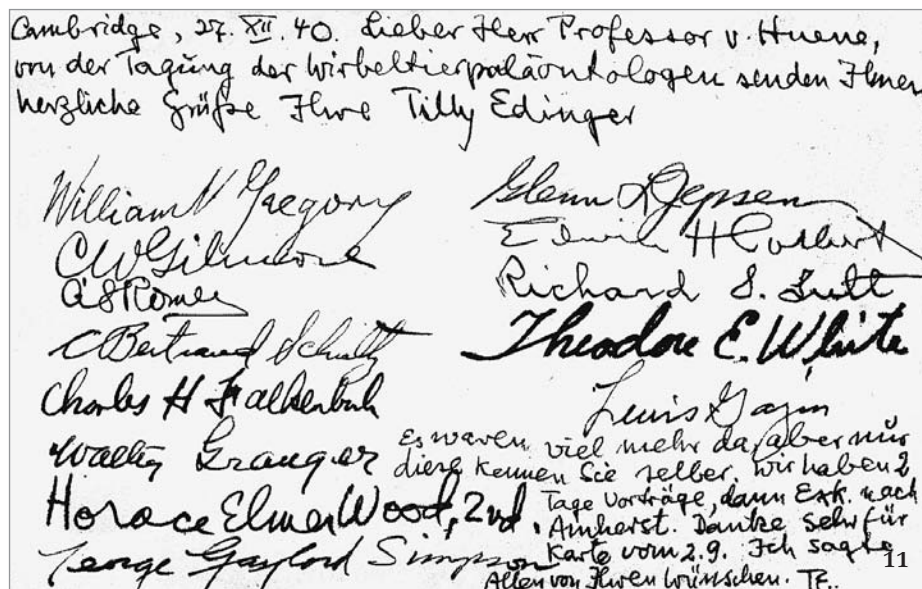 Cambridge, 27. XII. 40. Lieber Herr Professor v. Huene,
von der Tagung der Wirbeltierpaläontologen senden Ihnen
herzliche Grüße Ihre Tilly Edinger
William K Gregory
C W Gilmore
A S Romer
C Bertrand Schultz
Charles H Falkenbach
Walter Granger
Horace Elmer Wood, 2nd.
George Gaylord Simpson
Glenn L Jepsen
Edwin H Colbert
Richard S. Lull
Theodore E. White
Lewis Gazin
Es waren viel mehr da, aber nur
diese kennen Sie selber. Wir haben 2
Tage Vorträge, dann Exk. nach
Amherst. Danke sehr für
Karte vom 2.9. Ich sagte
Allen von Ihren Wünschen. TE.
11